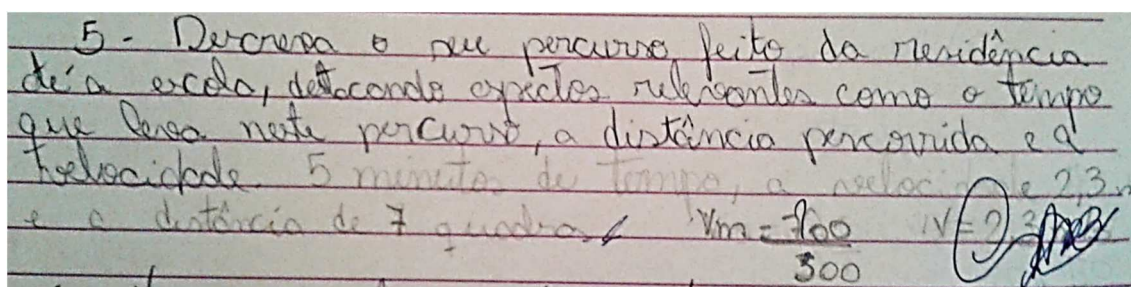 5- Descreva o seu percurso feito da residência
até a escola, destacando aspectos relevantes como o tempo
que leva neste percurso, a distância percorrida e a
velocidade. 5 minutos de tempo, a velocidade 2,3 m
e a distância de 7 quadras Vm = 700 V = 2,3
300